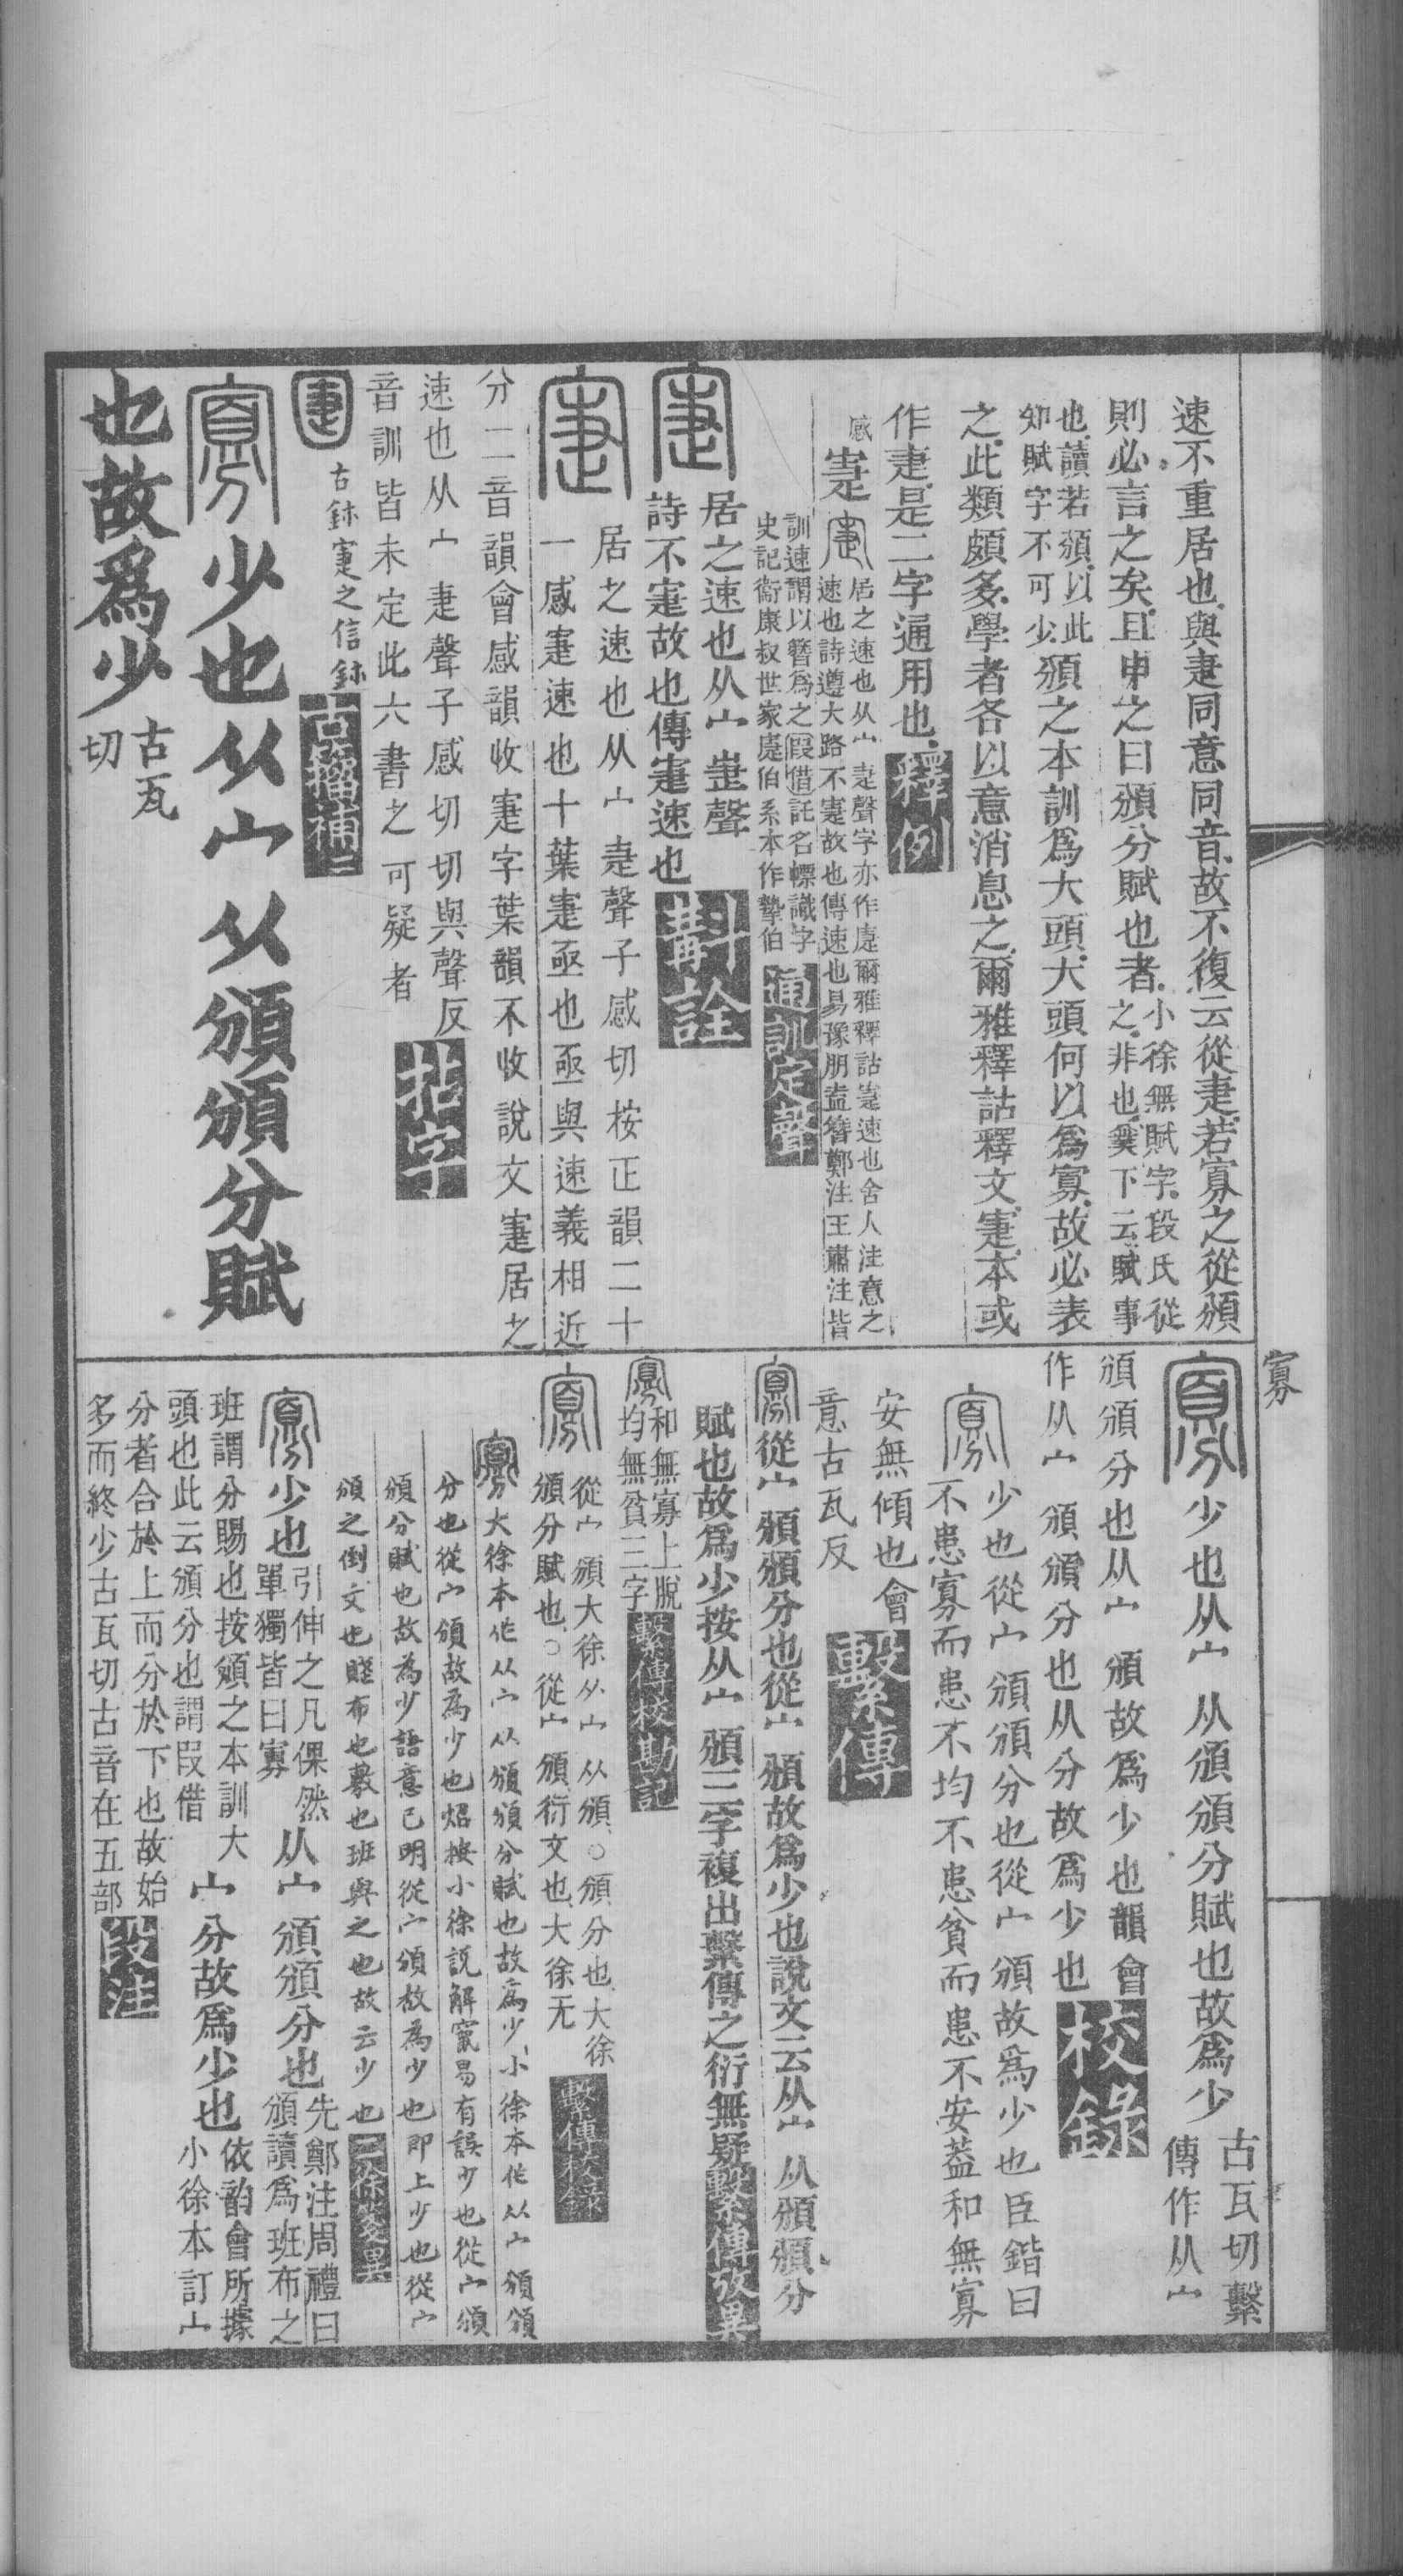 速不重居也與疌同意同音故不復云從疌若寡之從頒
則必言之矣且申之曰頒分賦也者小徐無賦字段氏從
之非也糞下云賦事
也讀若頒以此
知賦字不可少頒之本訓爲大頭大頭何以爲寡故必表
之此類頗多學者各以意消息之爾雅釋詁釋文寁本或
作疌是二字通用也釋例
感寁居之速也从宀疌聲字亦作㢙爾雅釋詁寁速也舍人注意之
速也詩遵大路不寁故也傳速也易豫朋盍簪鄭注王肅注皆
訓速謂以簪爲之叚借託名幖識字
史記衞康叔世家㢙伯系本作摯伯通訓定聲
寁居之速也从宀疌聲
詩不寁故也傳寁速也斠詮
寁居之速也从宀疌聲子感切按正韻二十
一感寁速也十葉寁亟也亟與速義相近
分二音韻會感韻收寁字葉韻不收說文寁居之
速也从宀疌聲子感切切與聲反
音訓皆未定此六書之可疑者拈字
寁古鉢寁之信鉢古籀補二
寡少也从宀从頒頒分賦
也故爲少古瓦
切
寡
寡少也从宀从頒頒分賦也故爲少古瓦切繫
傳作从宀
頒頒分也从宀頒故爲少也韻會
作从宀頒頒分也从分故爲少也校錄
寡少也從宀頒頒分也從宀頒故爲少也臣鍇曰
不患寡而患不均不患貧而患不安蓋和無寡
安無傾也會
意古瓦反繫傳
寡從宀頒頒分也從宀頒故爲少也說文云从宀从頒頒分
賦也故爲少按从宀頒三字複出繫傳之衍無疑繫傳攷異
寡和無寡上脫
均無貧三字繫傳校勘記
寡從宀頒大徐从宀从頒○頒分也大徐
頒分賦也○從宀頒衍文也大徐无繫傳校錄
寡大徐本作从宀从頒頒分賦也故爲少小徐本作从宀頒頒
分也從宀頒故爲少也炤按小徐說解竄易有誤少也從宀頒
頒分賦也故爲少語意已明從宀頒故爲少也即上少也從宀
頒之倒文也賦布也敷也班與之也故云少也二徐箋異
寡少也引伸之凡倮然
單獨皆曰寡从宀頒頒分也先鄭注周禮曰
頒讀爲班布之
班謂分賜也按頒之本訓大
頭也此云頒分也謂叚借宀分故爲少也依韵會所據
小徐本訂宀
分者合於上而分於下也故始
多而終少古瓦切古音在五部段注